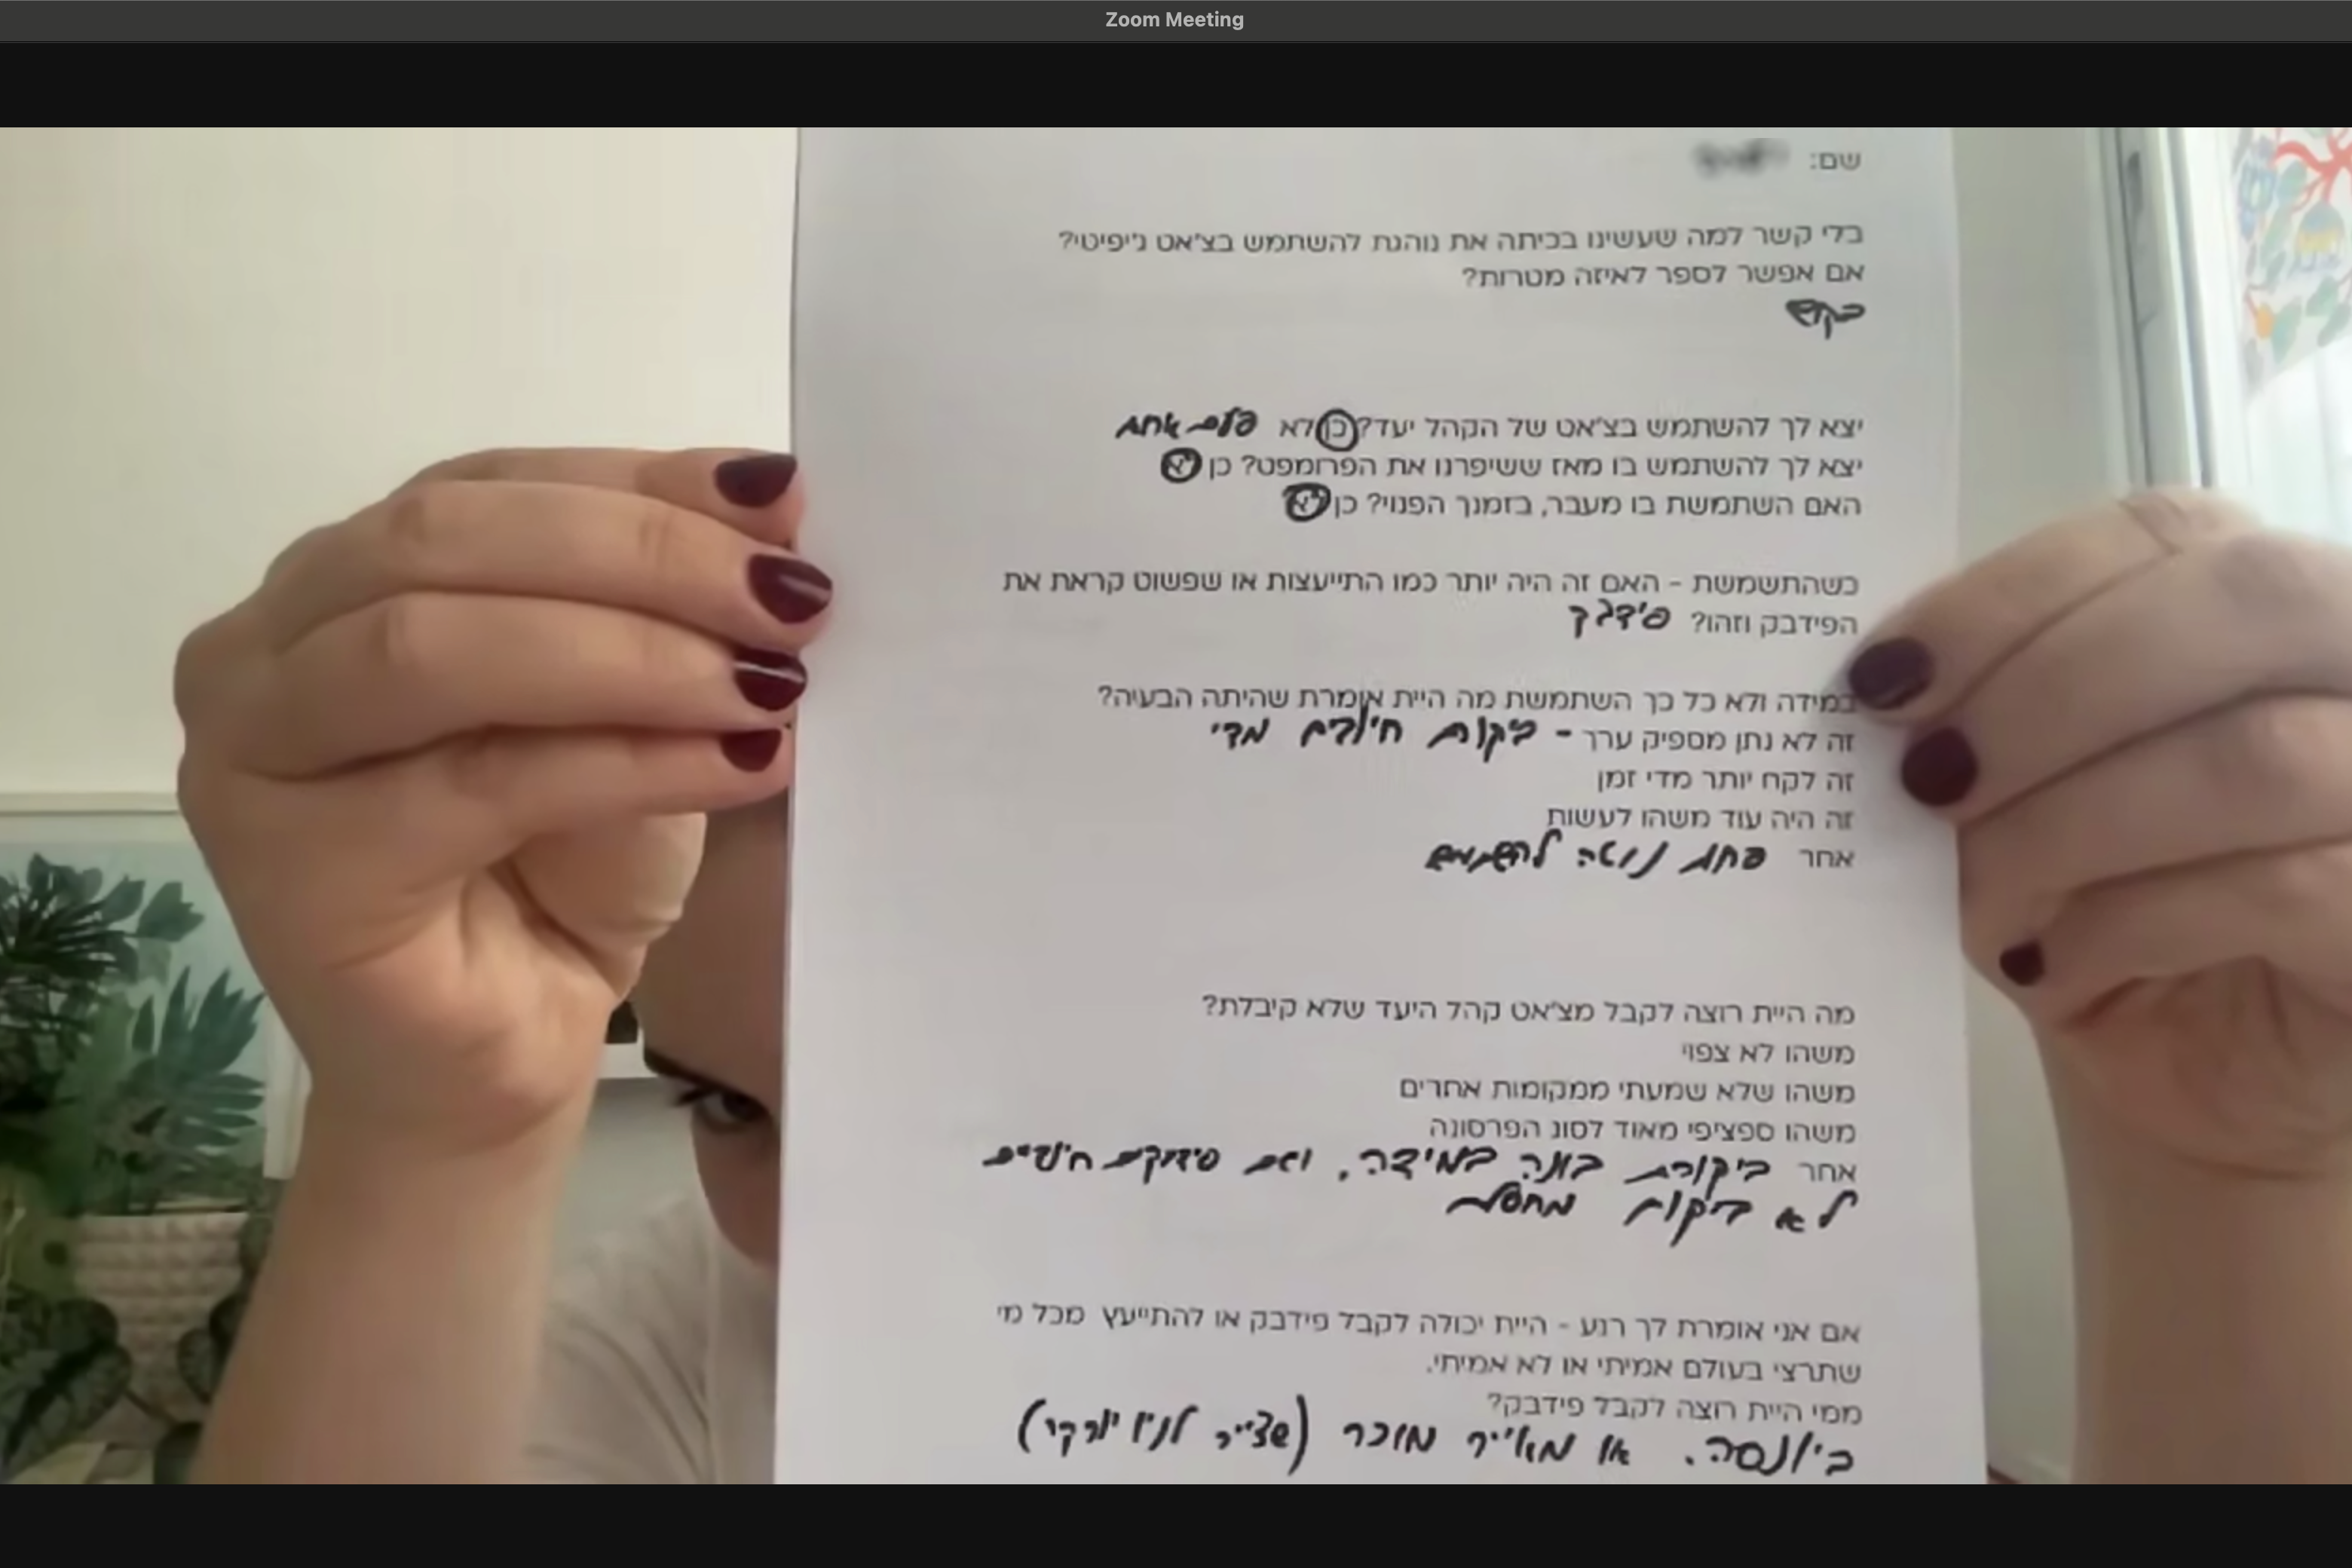 Zoom Meeting
שם:
בלי קשר למה שעשינו בכיתה את נוהגת להשתמש בצ'אט ג'יפיטי?
אם אפשר לספר לאיזה מטרות?
יצא לך להשתמש בצ'אט של הקהל יעד? כן לא פעם אחת
יצא לך להשתמש בו מאז ששיפרנו את הפרומפט? כן לא
האם השתמשת בו מעבר, בזמנך הפנוי? כן לא
כשהתשמשת - האם זה היה יותר כמו התייעצות או שפשוט קראת את
הפידבק וזהו? פידבק
במידה ולא כל כך השתמשת מה היית אומרת שהיתה הבעיה?
זה לא נתן מספיק ערך - מדי
זה לקח יותר מדי זמן
זה היה עוד משהו לעשות
אחר פחות נוטה להשתמש
מה היית רוצה לקבל מצ'אט קהל היעד שלא קיבלת?
משהו לא צפוי
משהו שלא שמעתי ממקומות אחרים
משהו ספציפי מאוד לסוג הפרסונה
אחר ביקורת בונה במידה, וגם פידבקים חיוביים
לא
אם אני אומרת לך רגע - היית יכולה לקבל פידבק או להתייעץ מכל מי
שתרצי בעולם אמיתי או לא אמיתי.
ממי היית רוצה לקבל פידבק?
ביונסה. או מאייר מוכר (שצייר לניו יורקר)